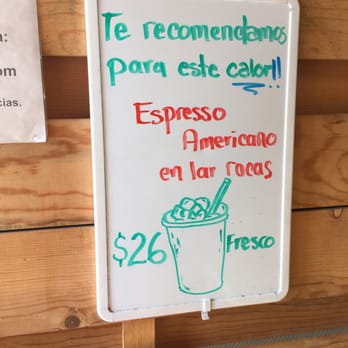 a:
om
cias.
Te recomendamos
para este calor!!
Espresso
Americano
en lar rocas
$26 Fresco